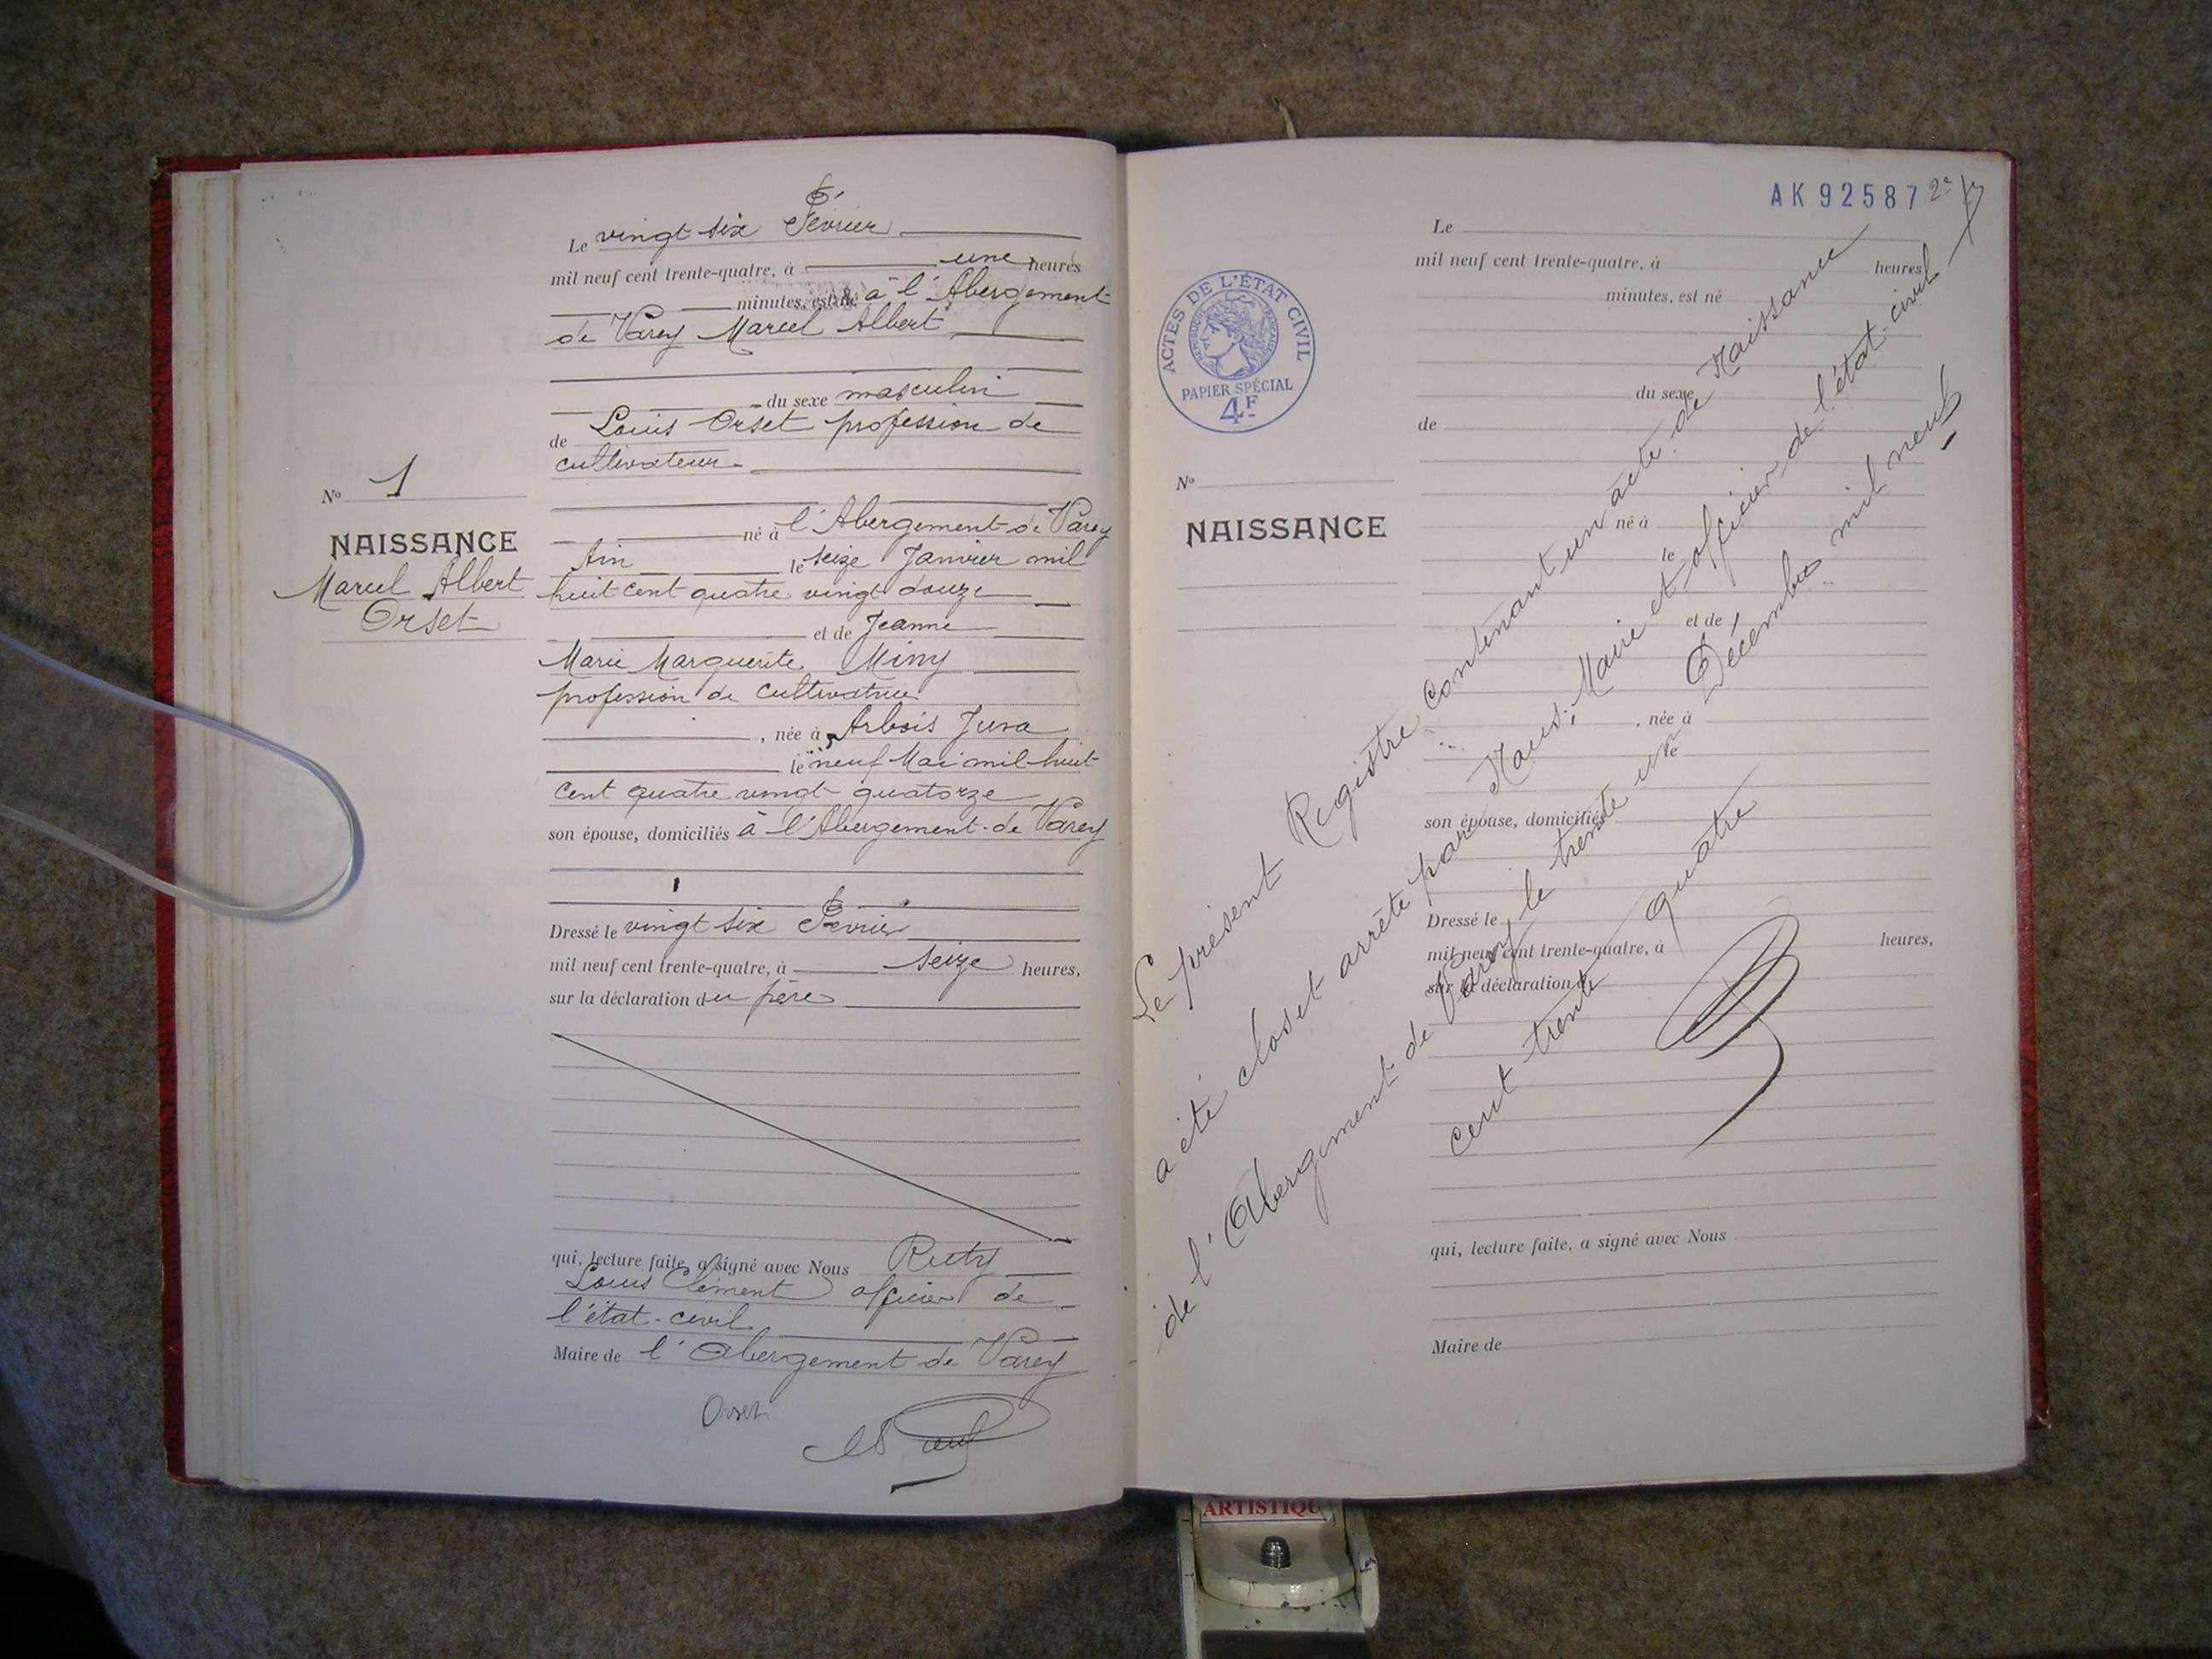 Le vingt six Février
mil neuf cent trente-quatre, à une heures
minutes, est né à l'Abergement
de Varey Marcel Albert
du sexe masculin
de Louis Orset profession de
cultivateur
né à l'Abergement de Varey
Ain le seize Janvier mil
huit cent quatre vingt douze
et de Jeanne
Marie Marguerite Miny
profession de cultivatrice
, née à Arbois Jura
le neuf Mai mil huit
cent quatre vingt quatorze
son épouse, domiciliés à l'Abergement de Varey
Dressé le vingt six Février
mil neuf cent trente-quatre, à seize heures,
sur la déclaration du père
qui, lecture faite, a signé avec Nous Ruty
Louis Clément officier de
l'état-civil
Maire de l'Abergement de Varey
Orset
No 1
NAISSANCE
Marcel Albert
Orset
AK 92587
2e
ACTES DE L'ÉTAT CIVIL
RÉPUBLIQUE FRANÇAISE
PAPIER SPÉCIAL
4F
No
NAISSANCE
Le
mil neuf cent trente-quatre, à heures
minutes, est né
du sexe
de
né à
le
et de
, née à
le
son épouse, domiciliés
Dressé le
mil neuf cent trente-quatre, à heures,
sur la déclaration d
qui, lecture faite, a signé avec Nous
Maire de
Le présent Registre contenant un acte de Naissance
a été clos et arrêté par Nous, Maire et officier de l'état-civil
de l'Abergement de Varey le trente un Décembre mil neuf
cent trente quatre
ARTISTIQU